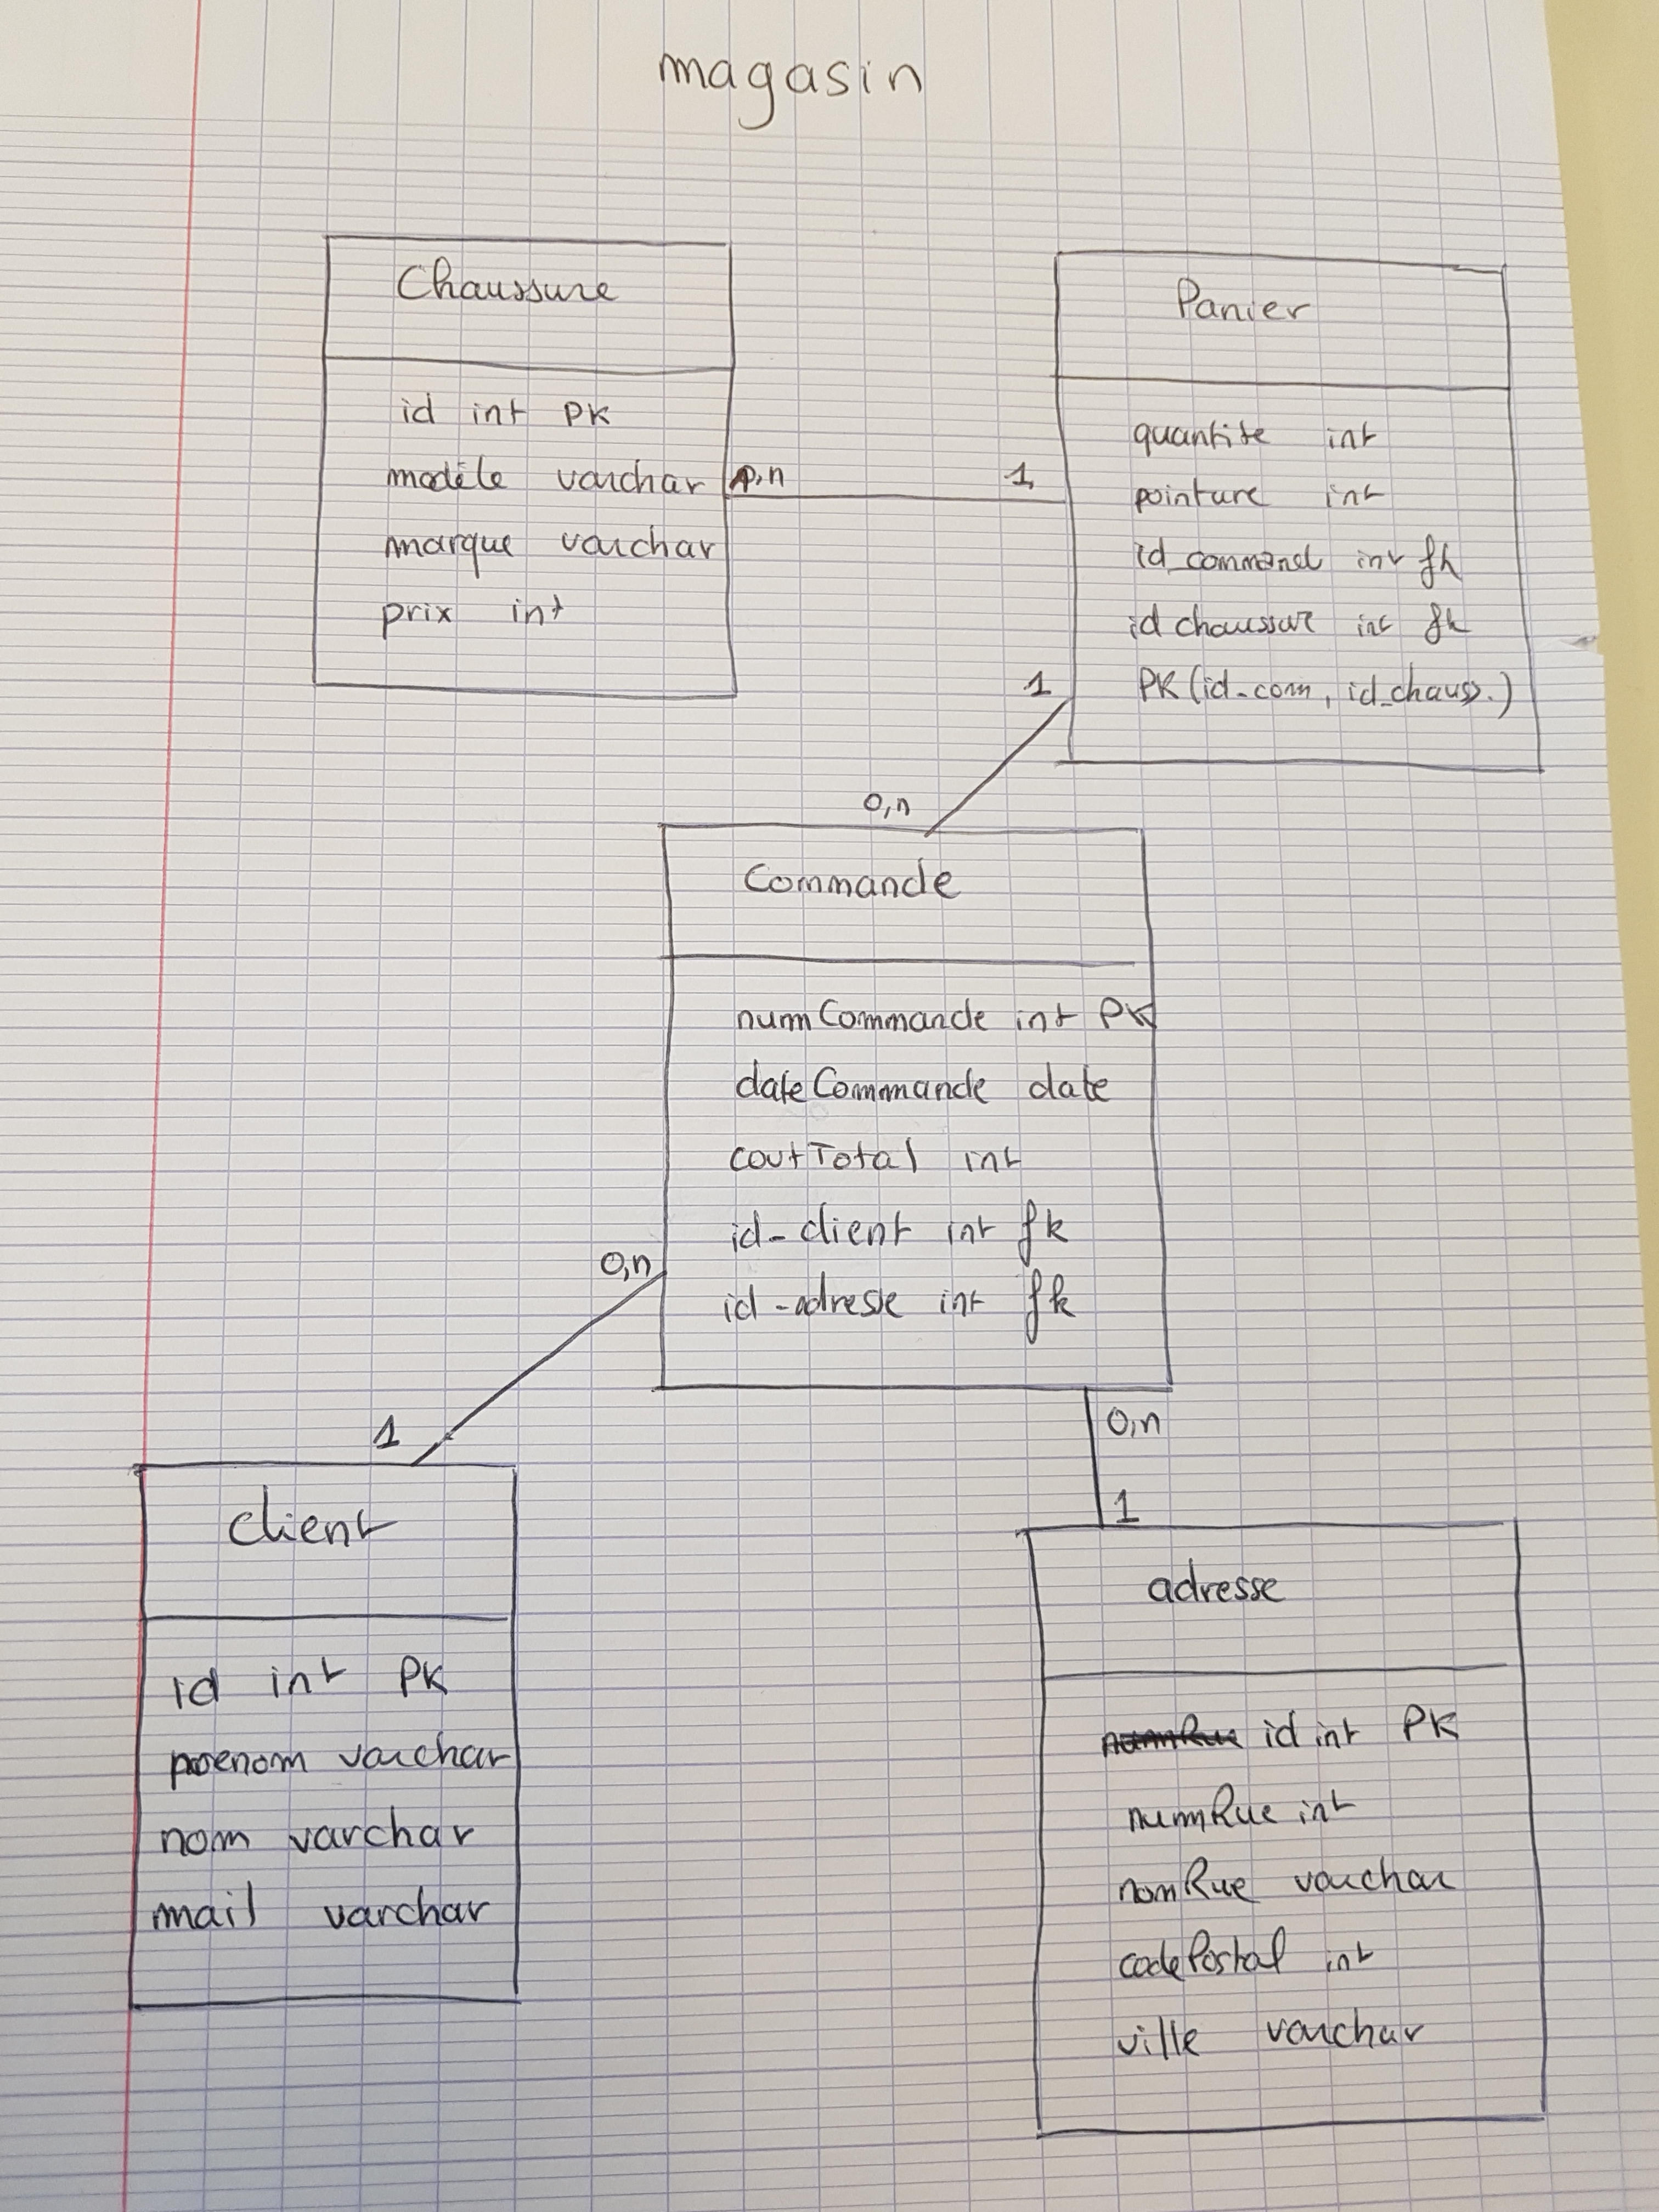 magasin
Chaussure
id int PK
modèle varchar
marque varchar
prix int
n
1
Panier
quantite int
pointure int
id_command int fk
id chaussure int fk
PK (id_com, id_chauss.)
1
0,n
Commande
numCommande int PK
dateCommande date
coutTotal int
id_client int fk
id_adresse int fk
0,n
1
client
id int PK
prenom varchar
nom varchar
mail varchar
0,n
1
adresse
numRue id int PK
numRue int
nomRue varchar
codePostal int
ville varchar